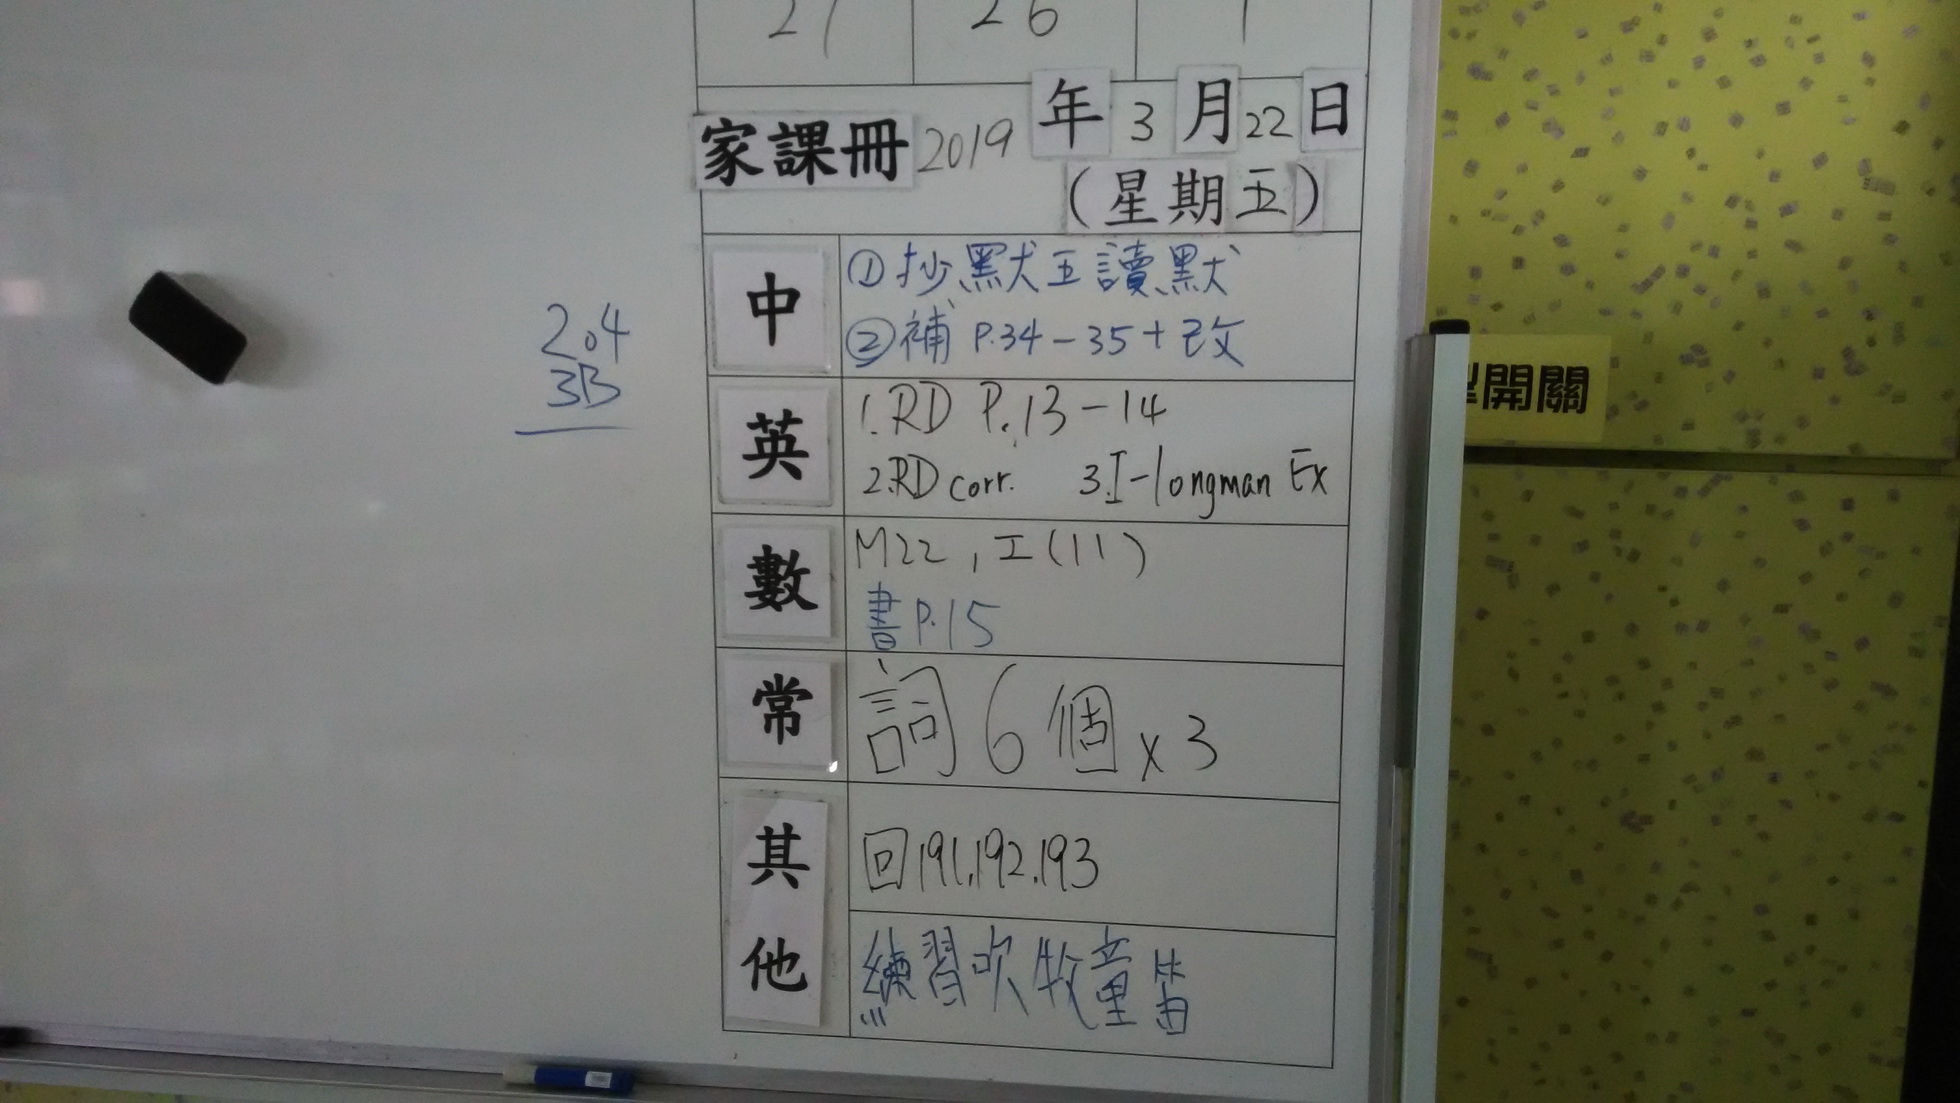 26
家課冊 2019 年 3 月 22 日
(星期五)
2.4
3B
中
①抄默五讀默
②補 P.34-35+改
英
1.RD P.13-14
2.RD corr. 3.I-longman Ex
數
M22, I(11)
書P.15
常
詞6個x3
其他
回191,192,193
練習吹牧童笛
開關